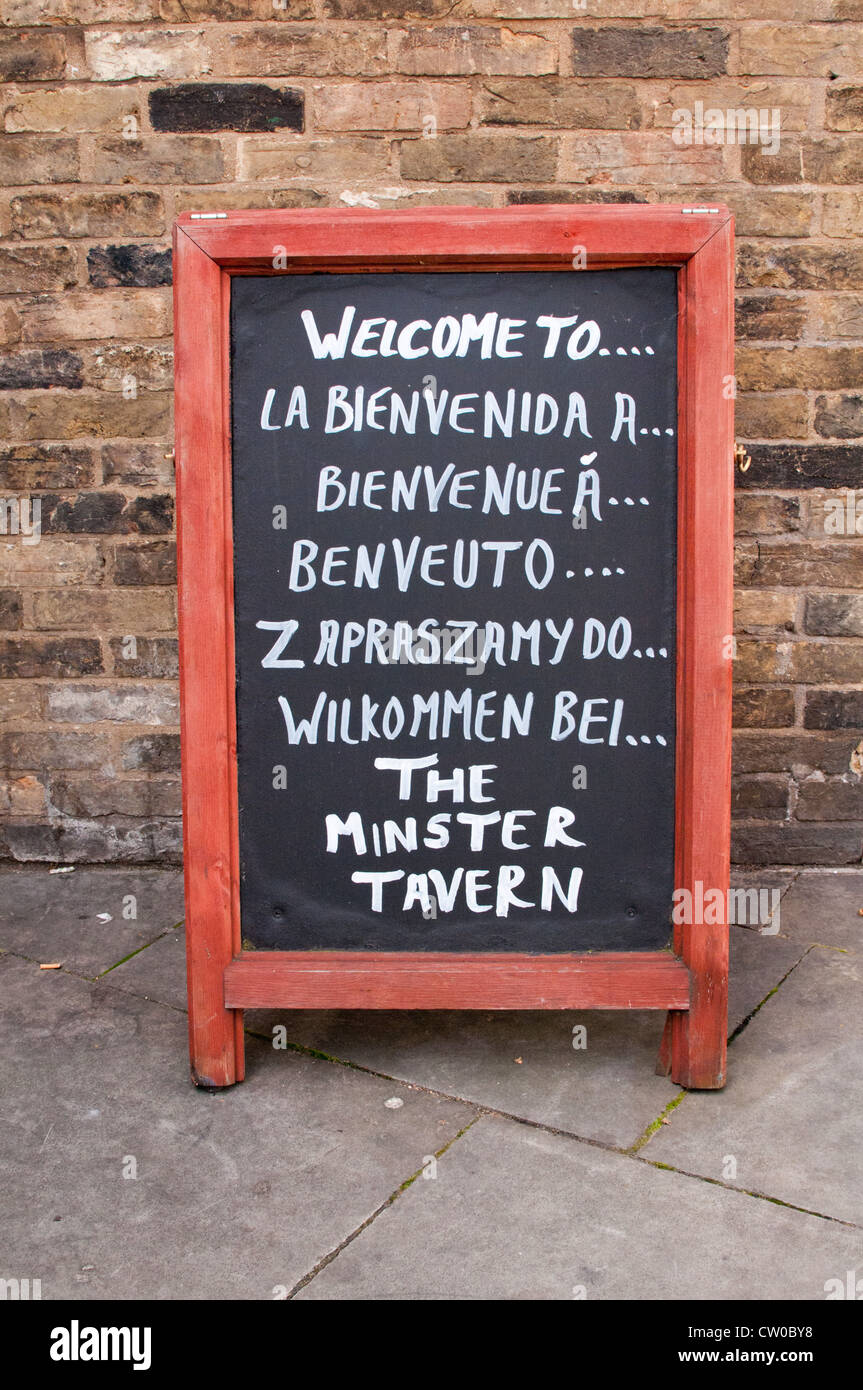 WELCOME TO....
LA BIENVENIDA A...
BIENVENUE Á...
BENVEUTO.....
ZAPRASZAMY DO...
WILKOMMEN BEI...
THE
MINSTER
TAVERN
alamy
Image ID: CW0BY8
www.alamy.com